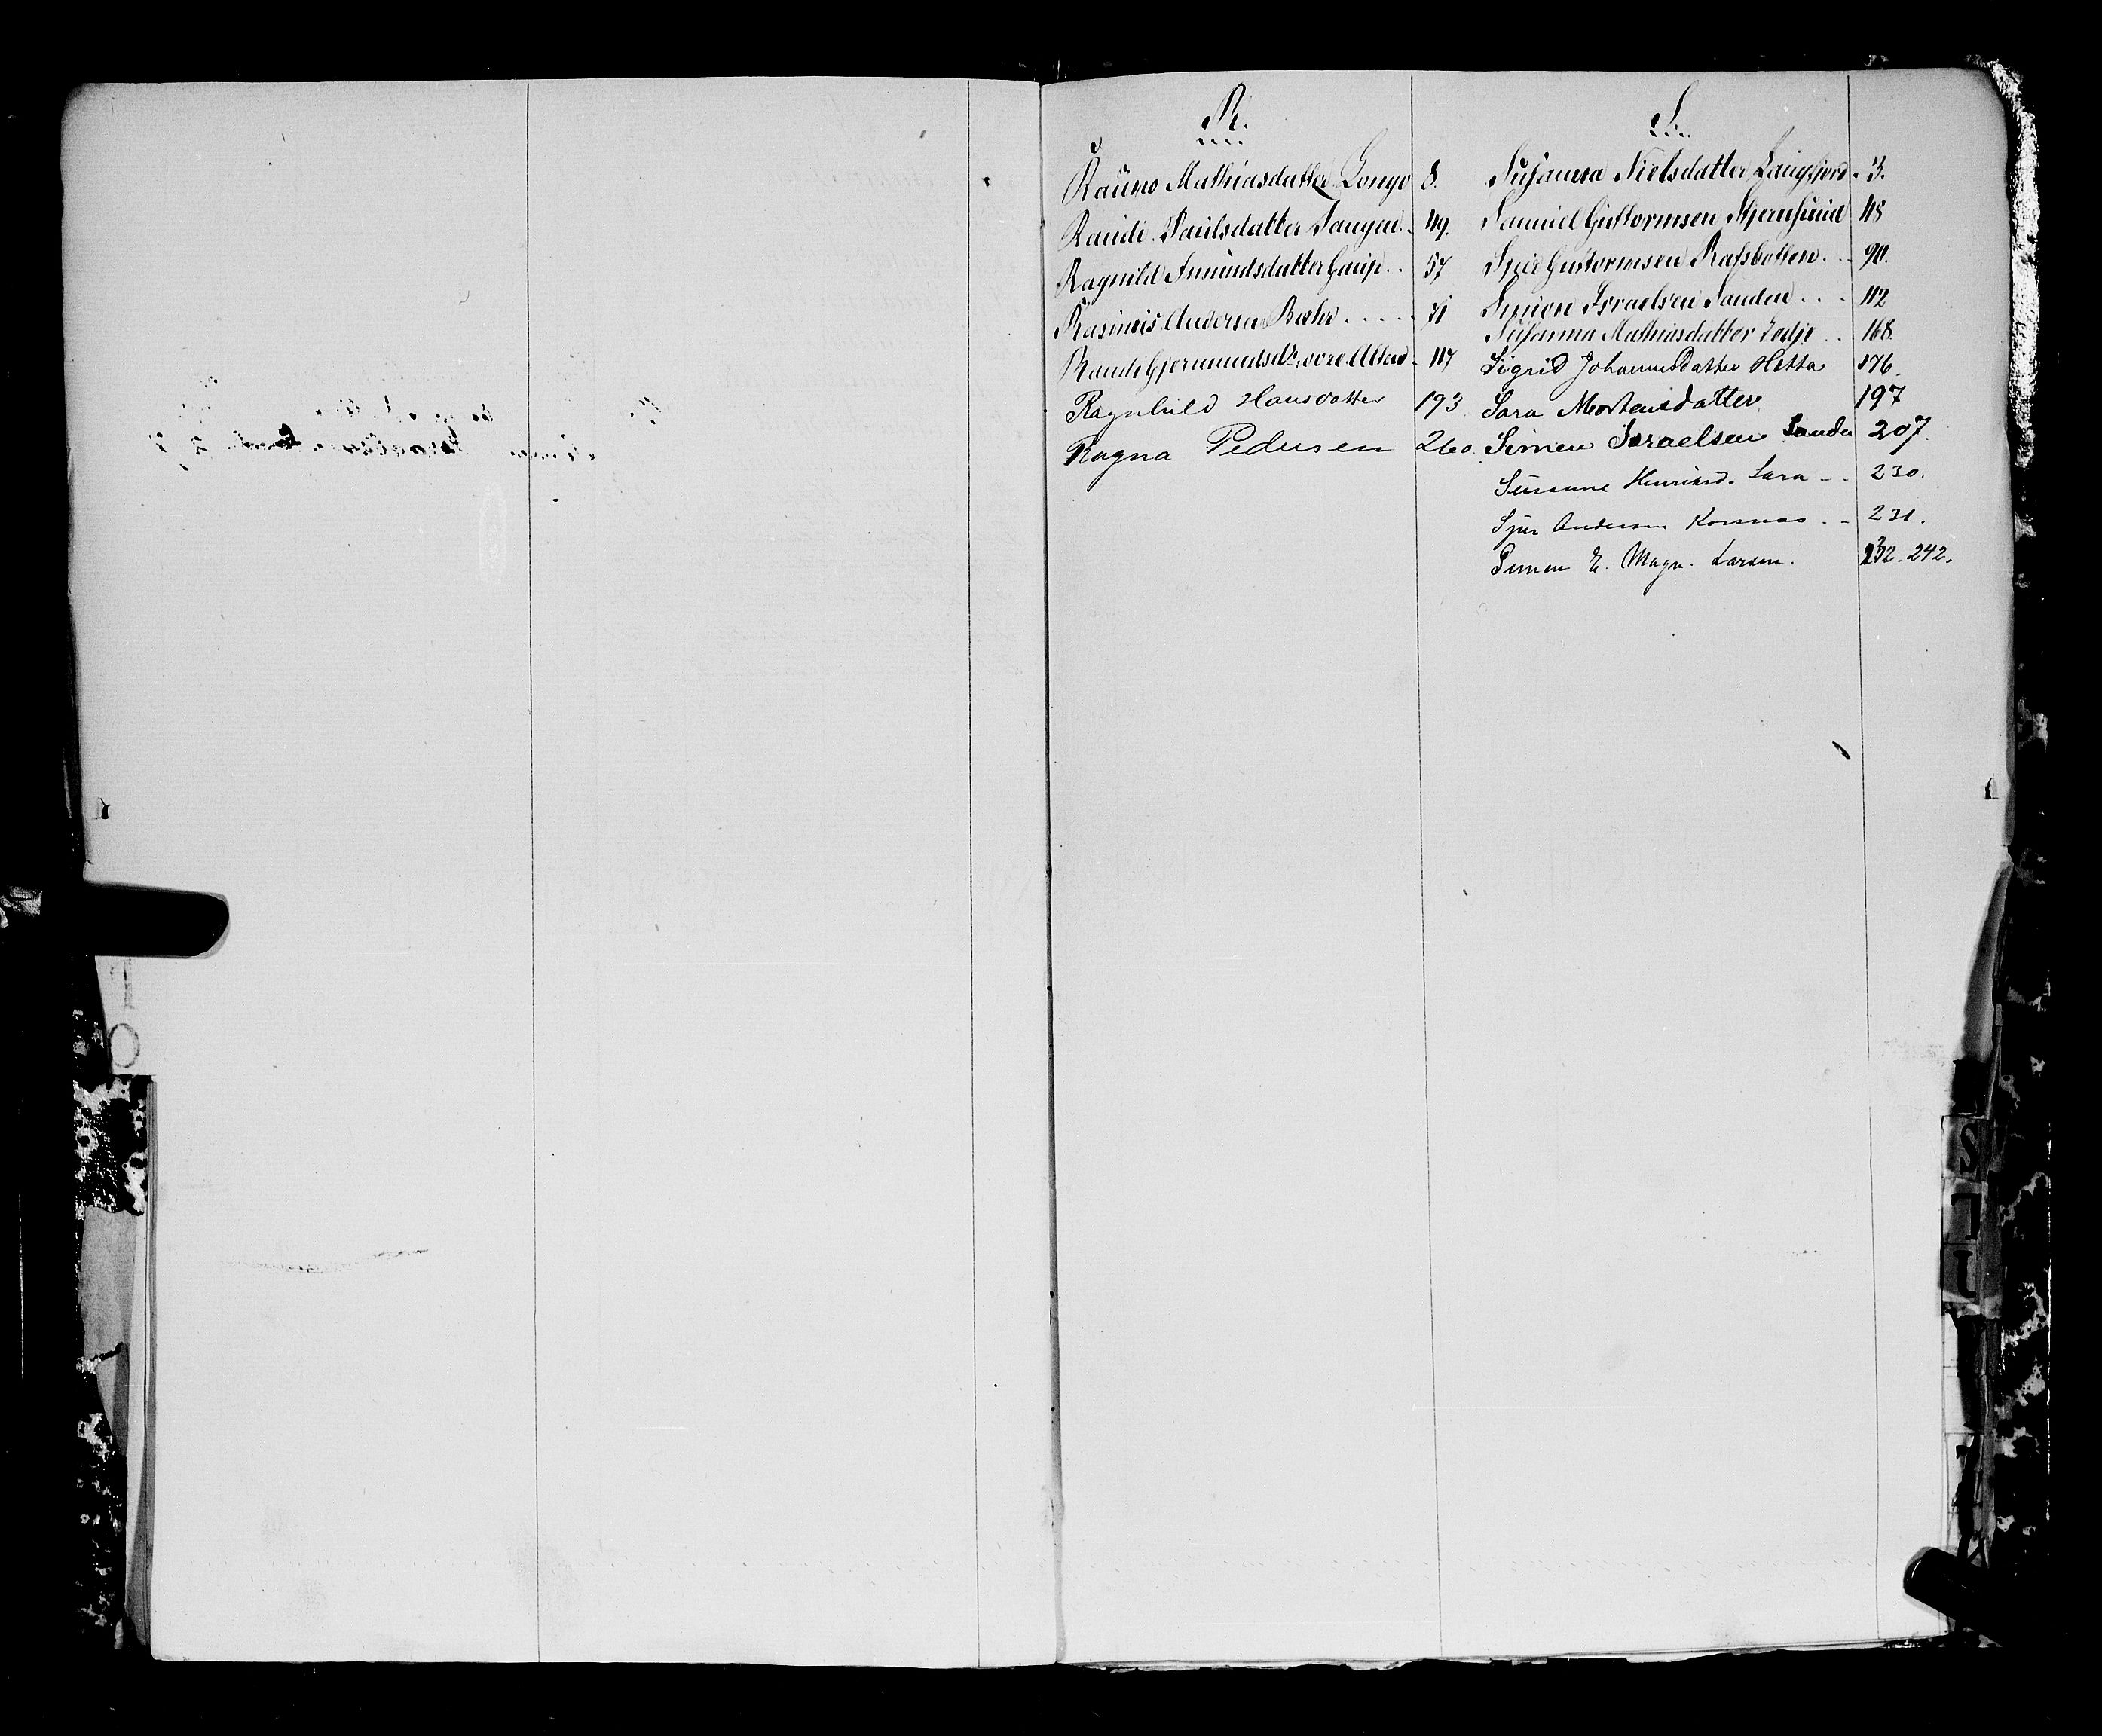 R.
Rauno Mathiasdatter Longo 8.
Randi Paulsdatter Tangen. 49.
Ragnild Amundsdatter Gaup. . 57
Rasmus Andersen Bæhr . . . . . 71
Randi Gjermundsdtr. øvre Alten - 117
Ragnhild Hansdatter 193
Ragna Pedersen 260.
S.
Susanna Nielsdatter Langfjord. 3.
Samuel Guttormsen Stjernsund 48
Sjur Guttormsen Rafsbotten . . . 90.
Simon Israelsen Sanden . . . 112
Susanna Mathiasdatter . . 168.
Sigrid Johannesdatter Hætta 176.
Sara Mortensdatter 197
Simen Israelsen Sanden 207.
Susanne Henriksd. Sara - - 230.
Sjur Andersen Korsnæs . - 231.
Simen E. Magn. Larsen. 232. 242.
S
T